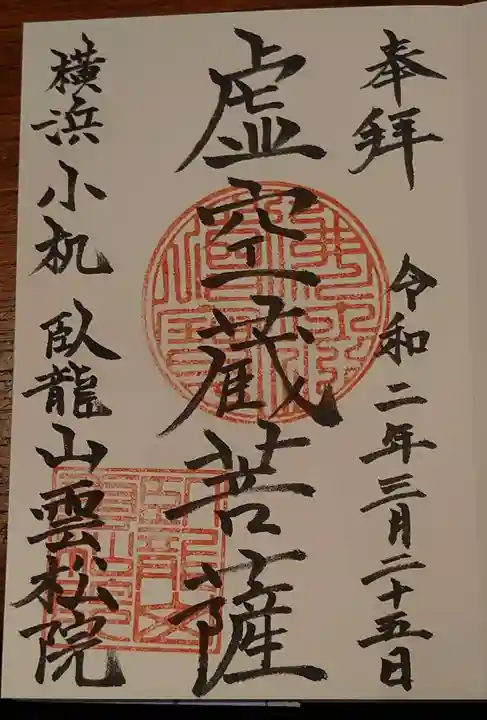 奉拝　令和二年三月二十五日
虚空蔵菩薩
横浜小机　臥龍山雲松院